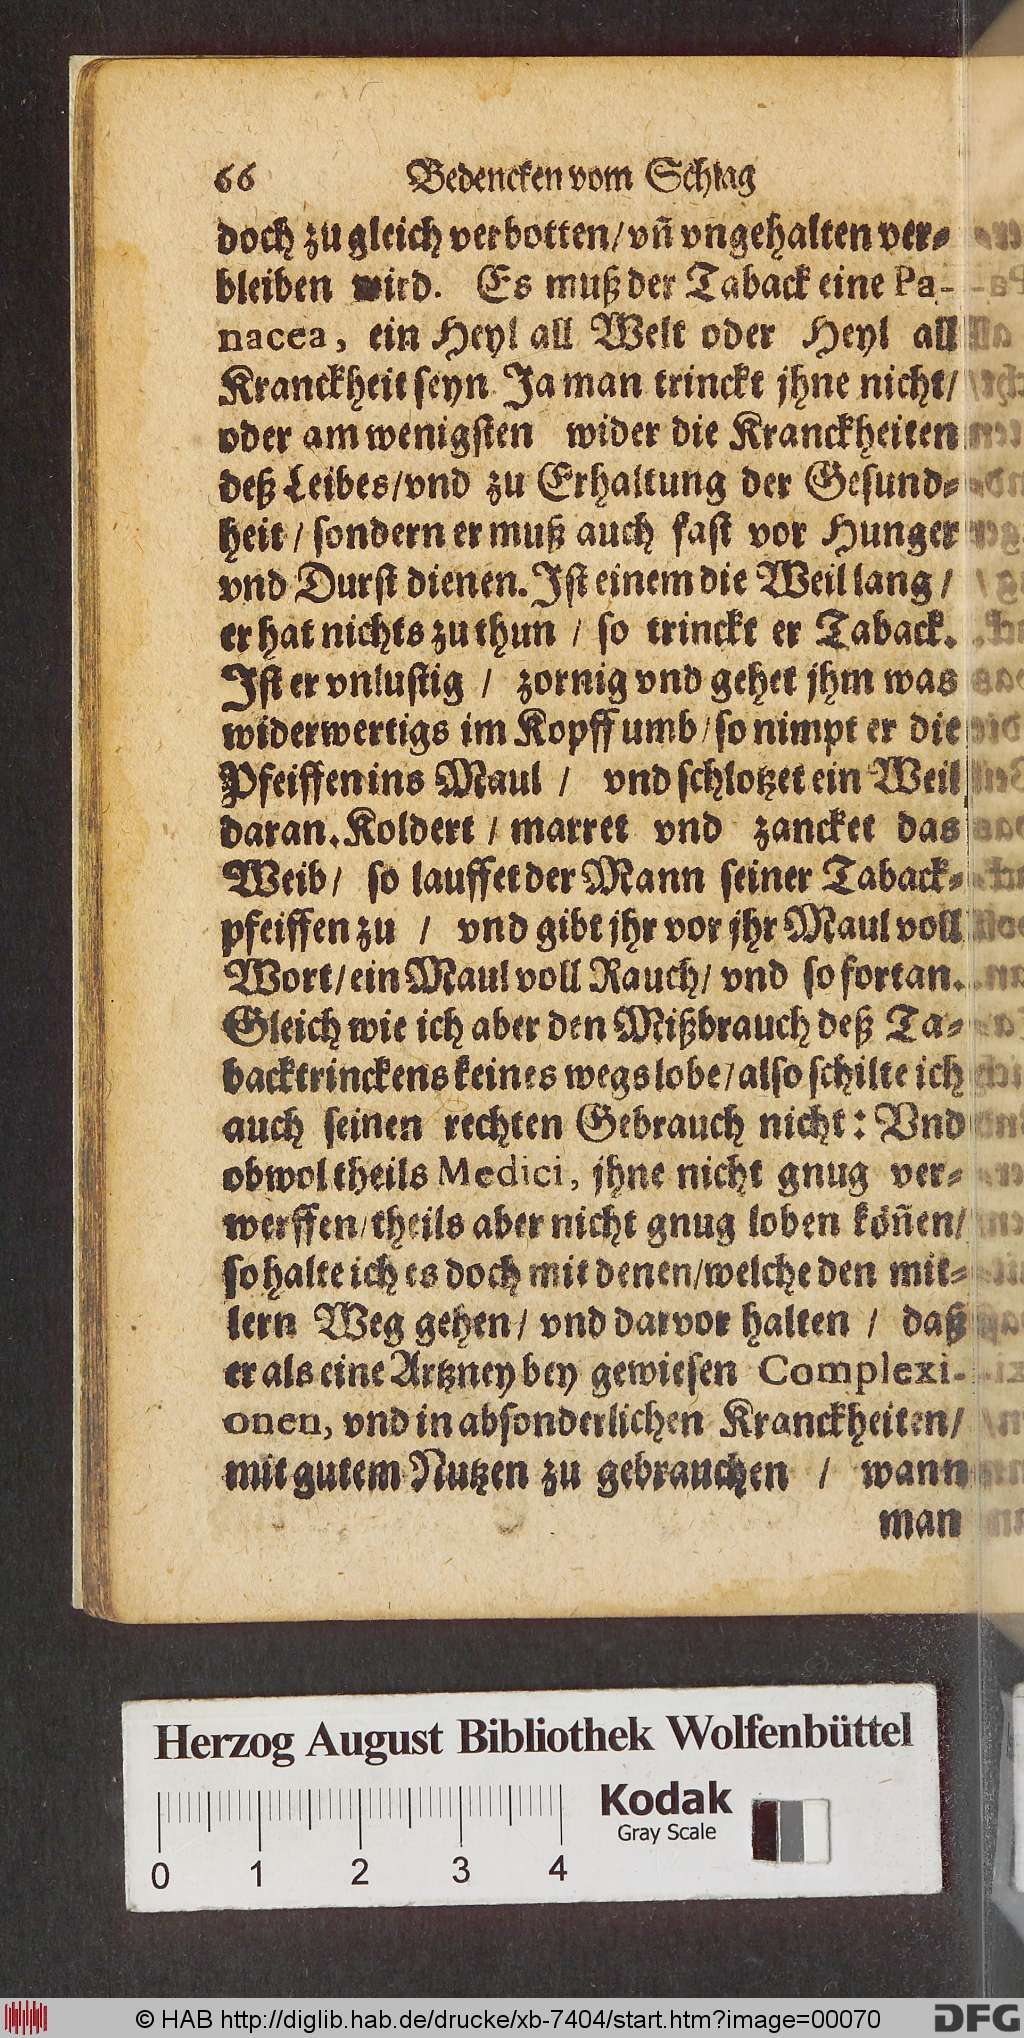 66 Bedencken vom Schlag
doch zu gleich verbotten/ vñ vngehalten ver-
bleiben wird. Es muß der Taback eine Pa-
nacea, ein Heyl all Welt oder Heyl all
Kranckheit seyn Ja man trinckt jhne nicht/
oder am wenigsten wider die Kranckheiten
deß Leibes/ vnd zu Erhaltung der Gesund-
heit / sondern er muß auch fast vor Hunger
vnd Durst dienen. Ist einem die Weil lang /
er hat nichts zu thun / so trinckt er Taback.
Ist er vnlustig / zornig vnd gehet jhm was
widerwertigs im Kopff umb / so nimpt er die
Pfeiffen ins Maul / vnd schlotzet ein Weil
daran. Koldert / marret vnd zancket das
Weib / so lauffet der Mann seiner Taback-
pfeiffen zu / vnd gibt jhr vor jhr Maul voll
Wort / ein Maul voll Rauch / vnd so fortan.
Gleich wie ich aber den Mißbrauch deß Ta-
backtrinckens keines wegs lobe / also schilte ich
auch seinen rechten Gebrauch nicht: Vnd
obwol theils Medici, jhne nicht gnug ver-
werffen / theils aber nicht gnug loben köñen/
so halte ich es doch mit denen / welche den mit-
lern Weg gehen / vnd darvor halten / daß
er als eine Artzney bey gewiesen Complexi-
onen, vnd in absonderlichen Kranckheiten /
mit gutem Nutzen zu gebrauchen / wann
man
Herzog August Bibliothek Wolfenbüttel
Kodak
Gray Scale
0 1 2 3 4
© HAB http://diglib.hab.de/drucke/xb-7404/start.htm?image=00070
DFG